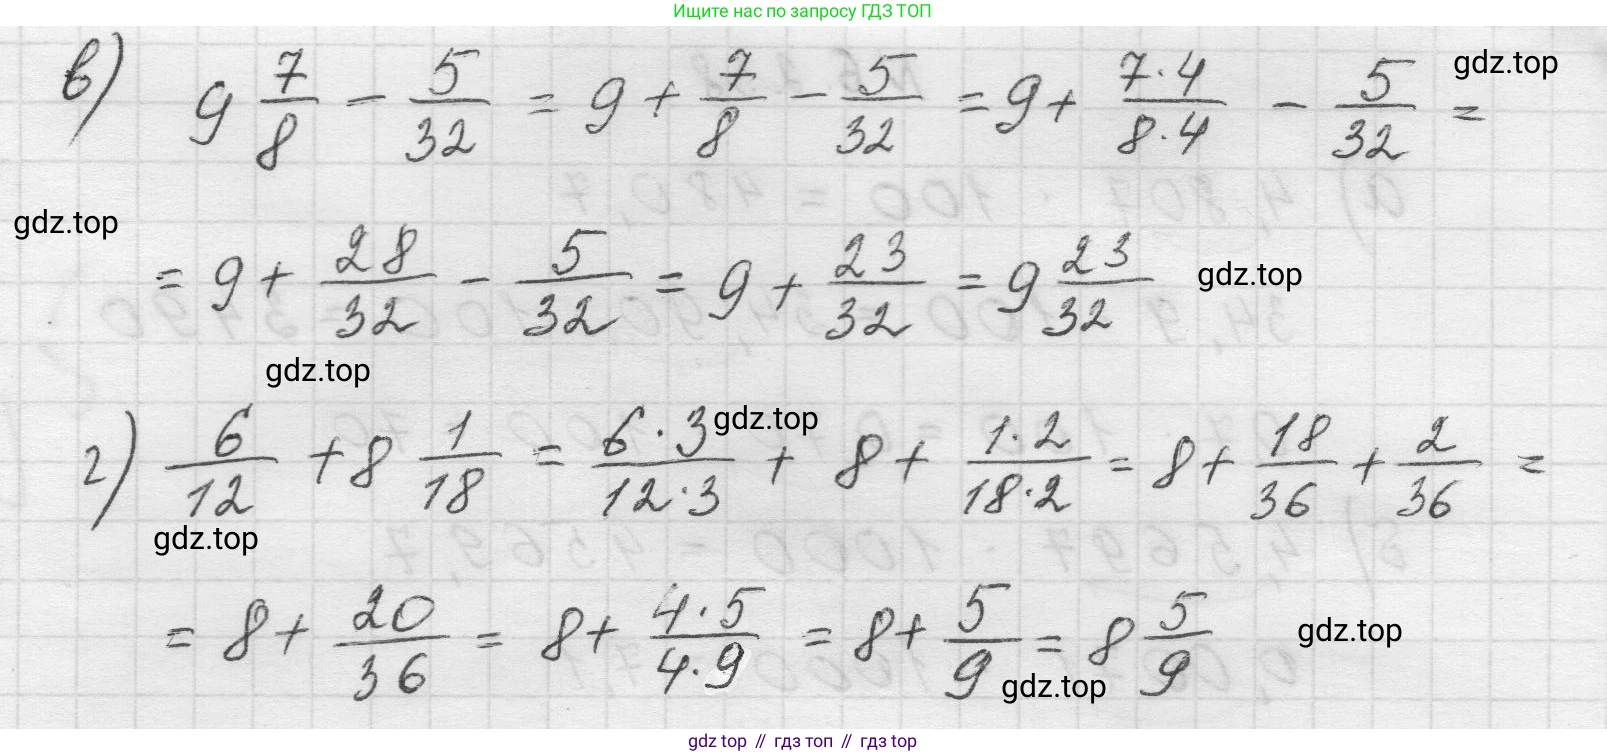 Ищите нас по запросу ГДЗ ТОП
в) 9 7/8 - 5/32 = 9 + 7/8 - 5/32 = 9 + 7·4/8·4 - 5/32 =
gdz.top
gdz.top
= 9 + 28/32 - 5/32 = 9 + 23/32 = 9 23/32
gdz.top
gdz.top
г) 6/12 + 8 1/18 = 6·3/12·3 + 8 + 1·2/18·2 = 8 + 18/36 + 2/36 =
gdz.top
gdz.top
= 8 + 20/36 = 8 + 4·5/4·9 = 8 + 5/9 = 8 5/9
gdz.top
gdz.top
gdz top // гдз топ // gdz top